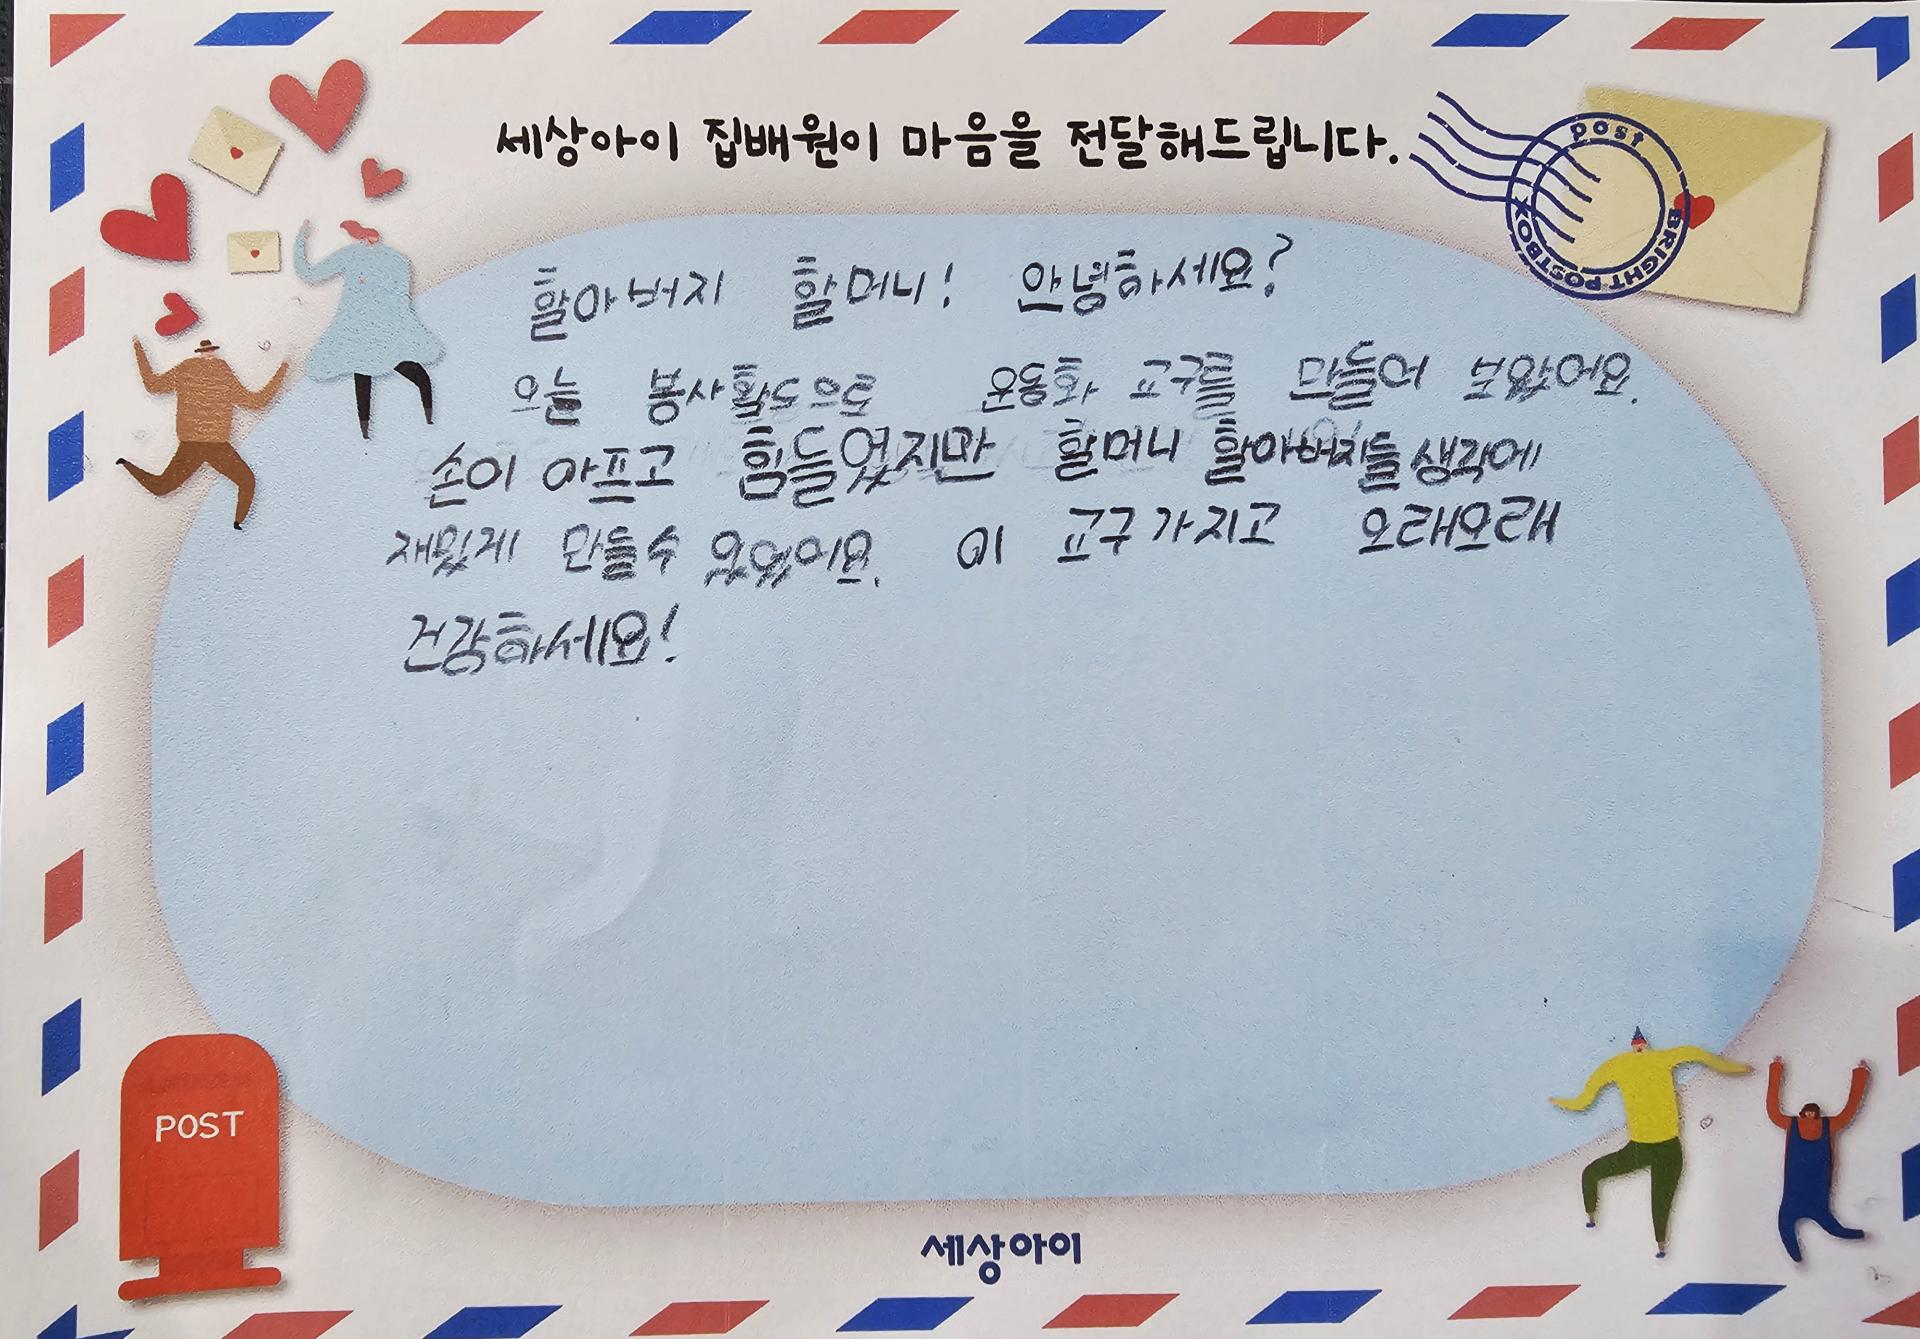 세상아이 집배원이 마음을 전달해드립니다.
post
BRIGHT POSTBOX
할아버지 할머니! 안녕하세요?
오늘 봉사활동으로 운동회 교구를 만들어 보았어요.
손이 아프고 힘들었지만 할머니 할아버지들 생각에
재밌게 만들수 있었어요. 이 교구 가지고 오래오래
건강하세요!
POST
세상아이